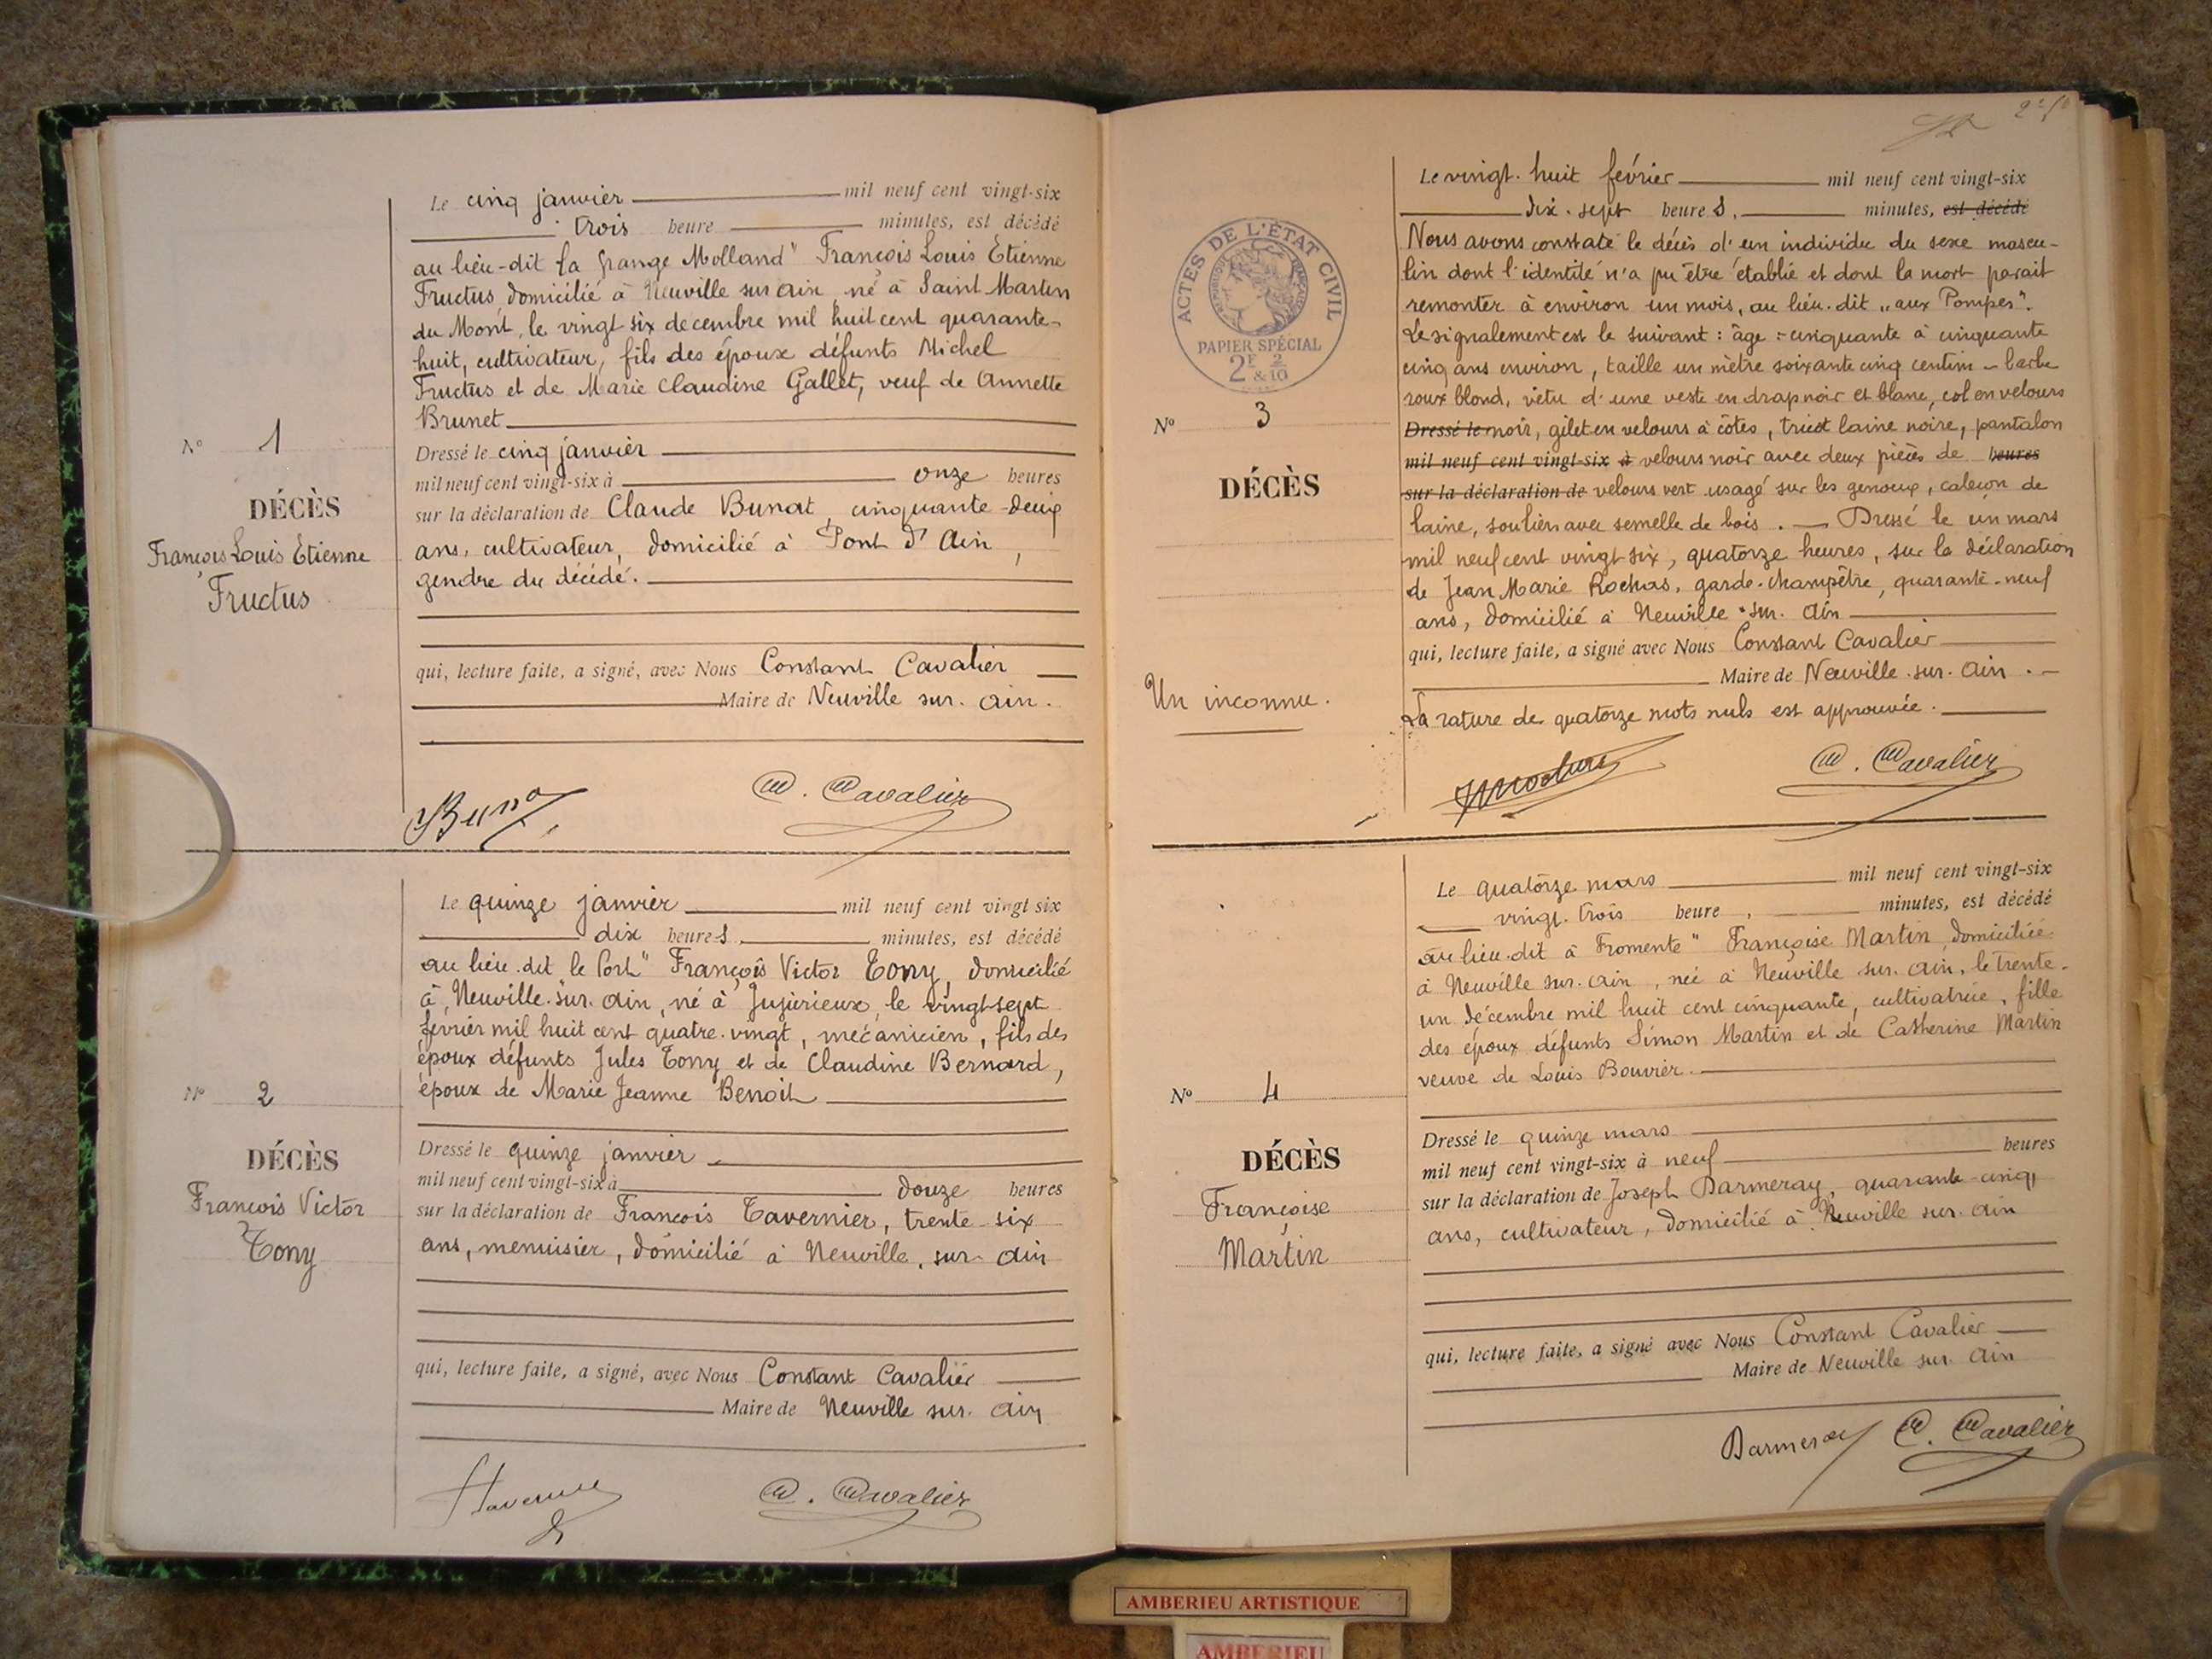 Le cinq janvier mil neuf cent vingt-six
trois heure minutes, est décédé
au lieu-dit la Grange Molland" François Louis Étienne
Fructus domicilié à Neuville sur Ain, né à Saint Martin
du Mont, le vingt six decembre mil huit cent quarante-
huit, cultivateur, fils des époux défunts Michel
Fructus et de Marie Claudine Gallet, veuf de Annette
Brunet
Nº 1
DÉCÈS
François Louis Etienne
Fructus
Dressé le cinq janvier
mil neuf cent vingt-six à onze heures
sur la déclaration de Claude Bunat, cinquante-deux
ans, cultivateur, domicilié à Pont d'Ain,
gendre du décédé.
qui, lecture faite, a signé, avec Nous Constant Cavalier
Maire de Neuville sur. Ain.
C. Cavalier
Le quinze janvier mil neuf cent vingt six
dix heures, minutes, est décédé
au lieu.dit le Port" François Victor Tony, domicilié
à Neuville.sur.Ain, né à Jujurieux, le vingt-sept
février mil huit cent quatre.vingt, mécanicien, fils des
époux défunts Jules Tony et de Claudine Bernard,
époux de Marie Jeanne Benoit
Nº 2
DÉCÈS
François Victor
Tony
Dressé le quinze janvier
mil neuf cent vingt-six à douze heures
sur la déclaration de François Tavernier, trente-six
ans, menuisier, domicilié à Neuville.sur-Ain
qui, lecture faite, a signé, avec Nous Constant Cavalier
Maire de Neuville sur. Ain
C. Cavalier
ACTES DE L'ÉTAT CIVIL
RÉPUBLIQUE FRANÇAISE
PAPIER SPÉCIAL
2F & 2/10
Le vingt.huit février mil neuf cent vingt-six
dix.sept heures, minutes, est décédé
Nous avons constaté le décès d'un individu du sexe mascu-
lin dont l'identité n'a pu être établie et dont la mort parait
remonter à environ un mois, au lieu.dit "aux Pompes".
Le signalement est le suivant : âge : cinquante à cinquante
cinq ans environ, taille un mètre soixante cinq centim - barbe
roux blond, vêtu d'une veste en drap noir et blanc, col en velours
Dressé le noir, gilet en velours à côtes, tricot laine noire, pantalon
mil neuf cent vingt-six à velours noir avec deux pièces de heures
sur la déclaration de velours vert usagé sur les genoux, caleçon de
laine, soulier avec semelle de bois. — Dressé le un mars
mil neuf cent vingt six, quatorze heures, sur la déclaration
de Jean Marie Rochas, garde-champêtre, quarante-neuf
ans, domicilié à Neuville.sur.Ain
qui, lecture faite, a signé avec Nous Constant Cavalier
Maire de Neuville.sur.Ain.
La rature de quatorze mots nuls est approuvée.
Nº 3
DÉCÈS
Un inconnu.
C. Cavalier
Le quatorze mars mil neuf cent vingt-six
vingt.trois heure, minutes, est décédé
au lieu.dit à Fromente" Françoise Martin, domiciliée
à Neuville sur.Ain, née à Neuville sur.Ain, le trente-
un décembre mil huit cent cinquante, cultivatrice, fille
des époux défunts Simon Martin et de Catherine Martin
veuve de Louis Bouvier.
Nº 4
DÉCÈS
Françoise
Martin
Dressé le quinze mars
mil neuf cent vingt-six à neuf heures
sur la déclaration de Joseph Darmeray, quarante-cinq
ans, cultivateur, domicilié à Neuville sur.Ain
qui, lecture faite, a signé avec Nous Constant Cavalier
Maire de Neuville sur.Ain
Darmeray C. Cavalier
AMBERIEU ARTISTIQUE
AMBERIEU